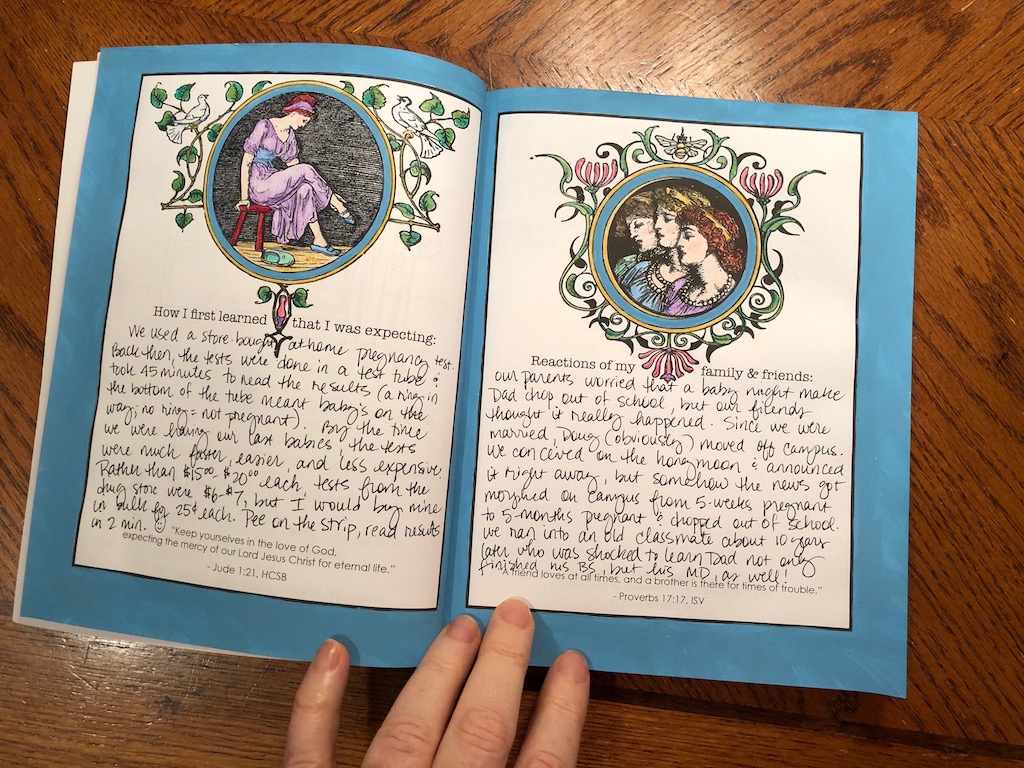 How I first learned that I was expecting:
We used a store-bought at home pregnancy test.
Back then, the tests were done in a test tube &
took 45 minutes to read the results (a ring in
the bottom of the tube meant baby's on the
way; no ring = not pregnant). By the time
we were having our last babies, the tests
were much faster, easier, and less expensive.
Rather than $15.00-$20.00 each, tests from the
drug store were $6-$7, but I would buy mine
in bulk for 25¢ each. Pee on the strip, read results
in 2 min. ☺
"Keep yourselves in the love of God,
expecting the mercy of our Lord Jesus Christ for eternal life."
- Jude 1:21, HCSB
Reactions of my family & friends:
our parents worried that a baby might make
Dad drop out of school, but our friends
thought it really happened. Since we were
married, Doug (obviously) moved off campus.
We conceived on the honeymoon & announced
it right away, but somehow the news got
morphed on campus from 5-weeks pregnant
to 5-months pregnant & dropped out of school.
We ran into an old classmate about 10 years
later who was shocked to learn Dad not only
finished his BS, but his MD, as well!
"A friend loves at all times, and a brother is there for times of trouble."
- Proverbs 17:17, ISV